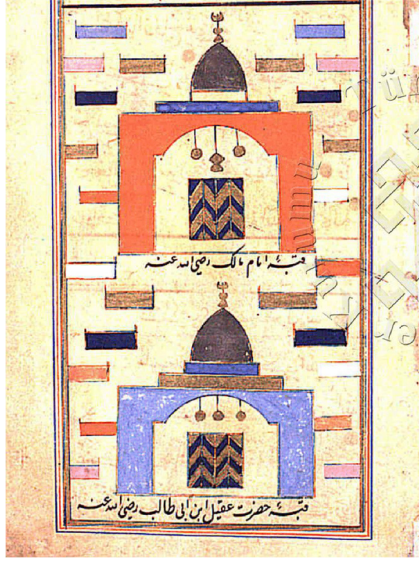 قبّهٔ امام مالک رضی الله عنه
قبّهٔ حضرت عقیل ابن ابی طالب رضی الله عنه